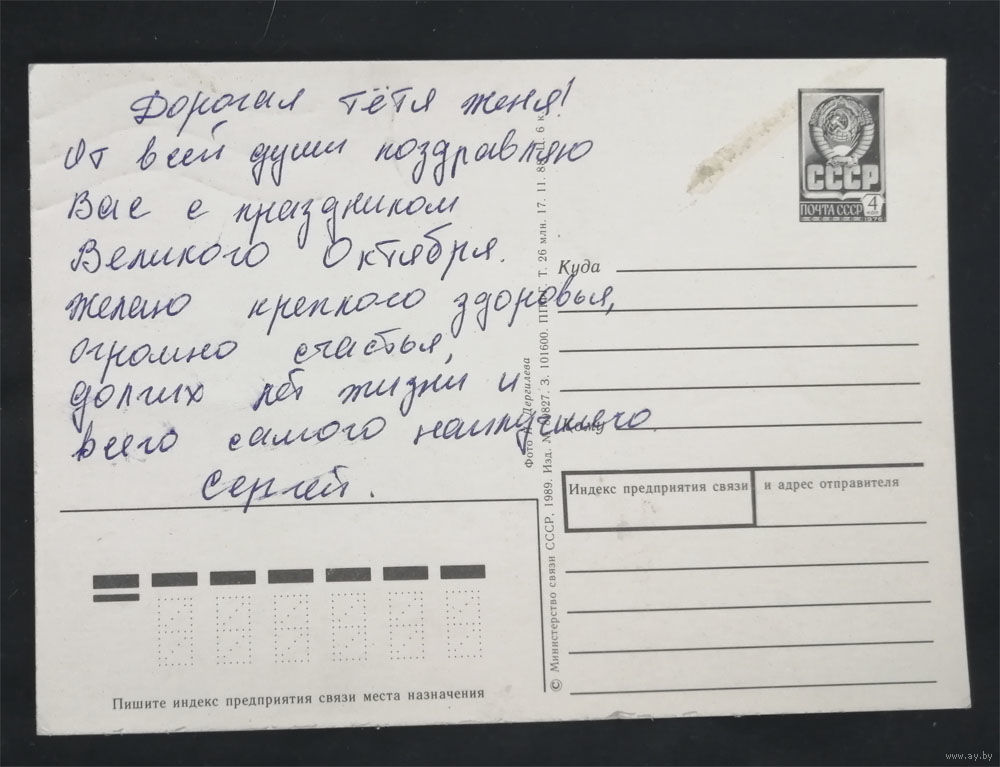 Дорогая тётя женя!
От всей души поздравляю
Вас с праздником
Великого Октября.
Желаю крепкого здоровья,
огромно счастья,
долгих лет жизни и
всего самого наилучшего.
Сергей.
СССР
ПОЧТА СССР
4
КОП
1976
Куда
Кому
Индекс предприятия связи и адрес отправителя
Пишите индекс предприятия связи места назначения
© Министерство связи СССР, 1989. Изд. 827. З. 101600. Т. 26 млн. 17. 11. 88. Ц. 6 к.
Фото Дергилева
www.ay.by